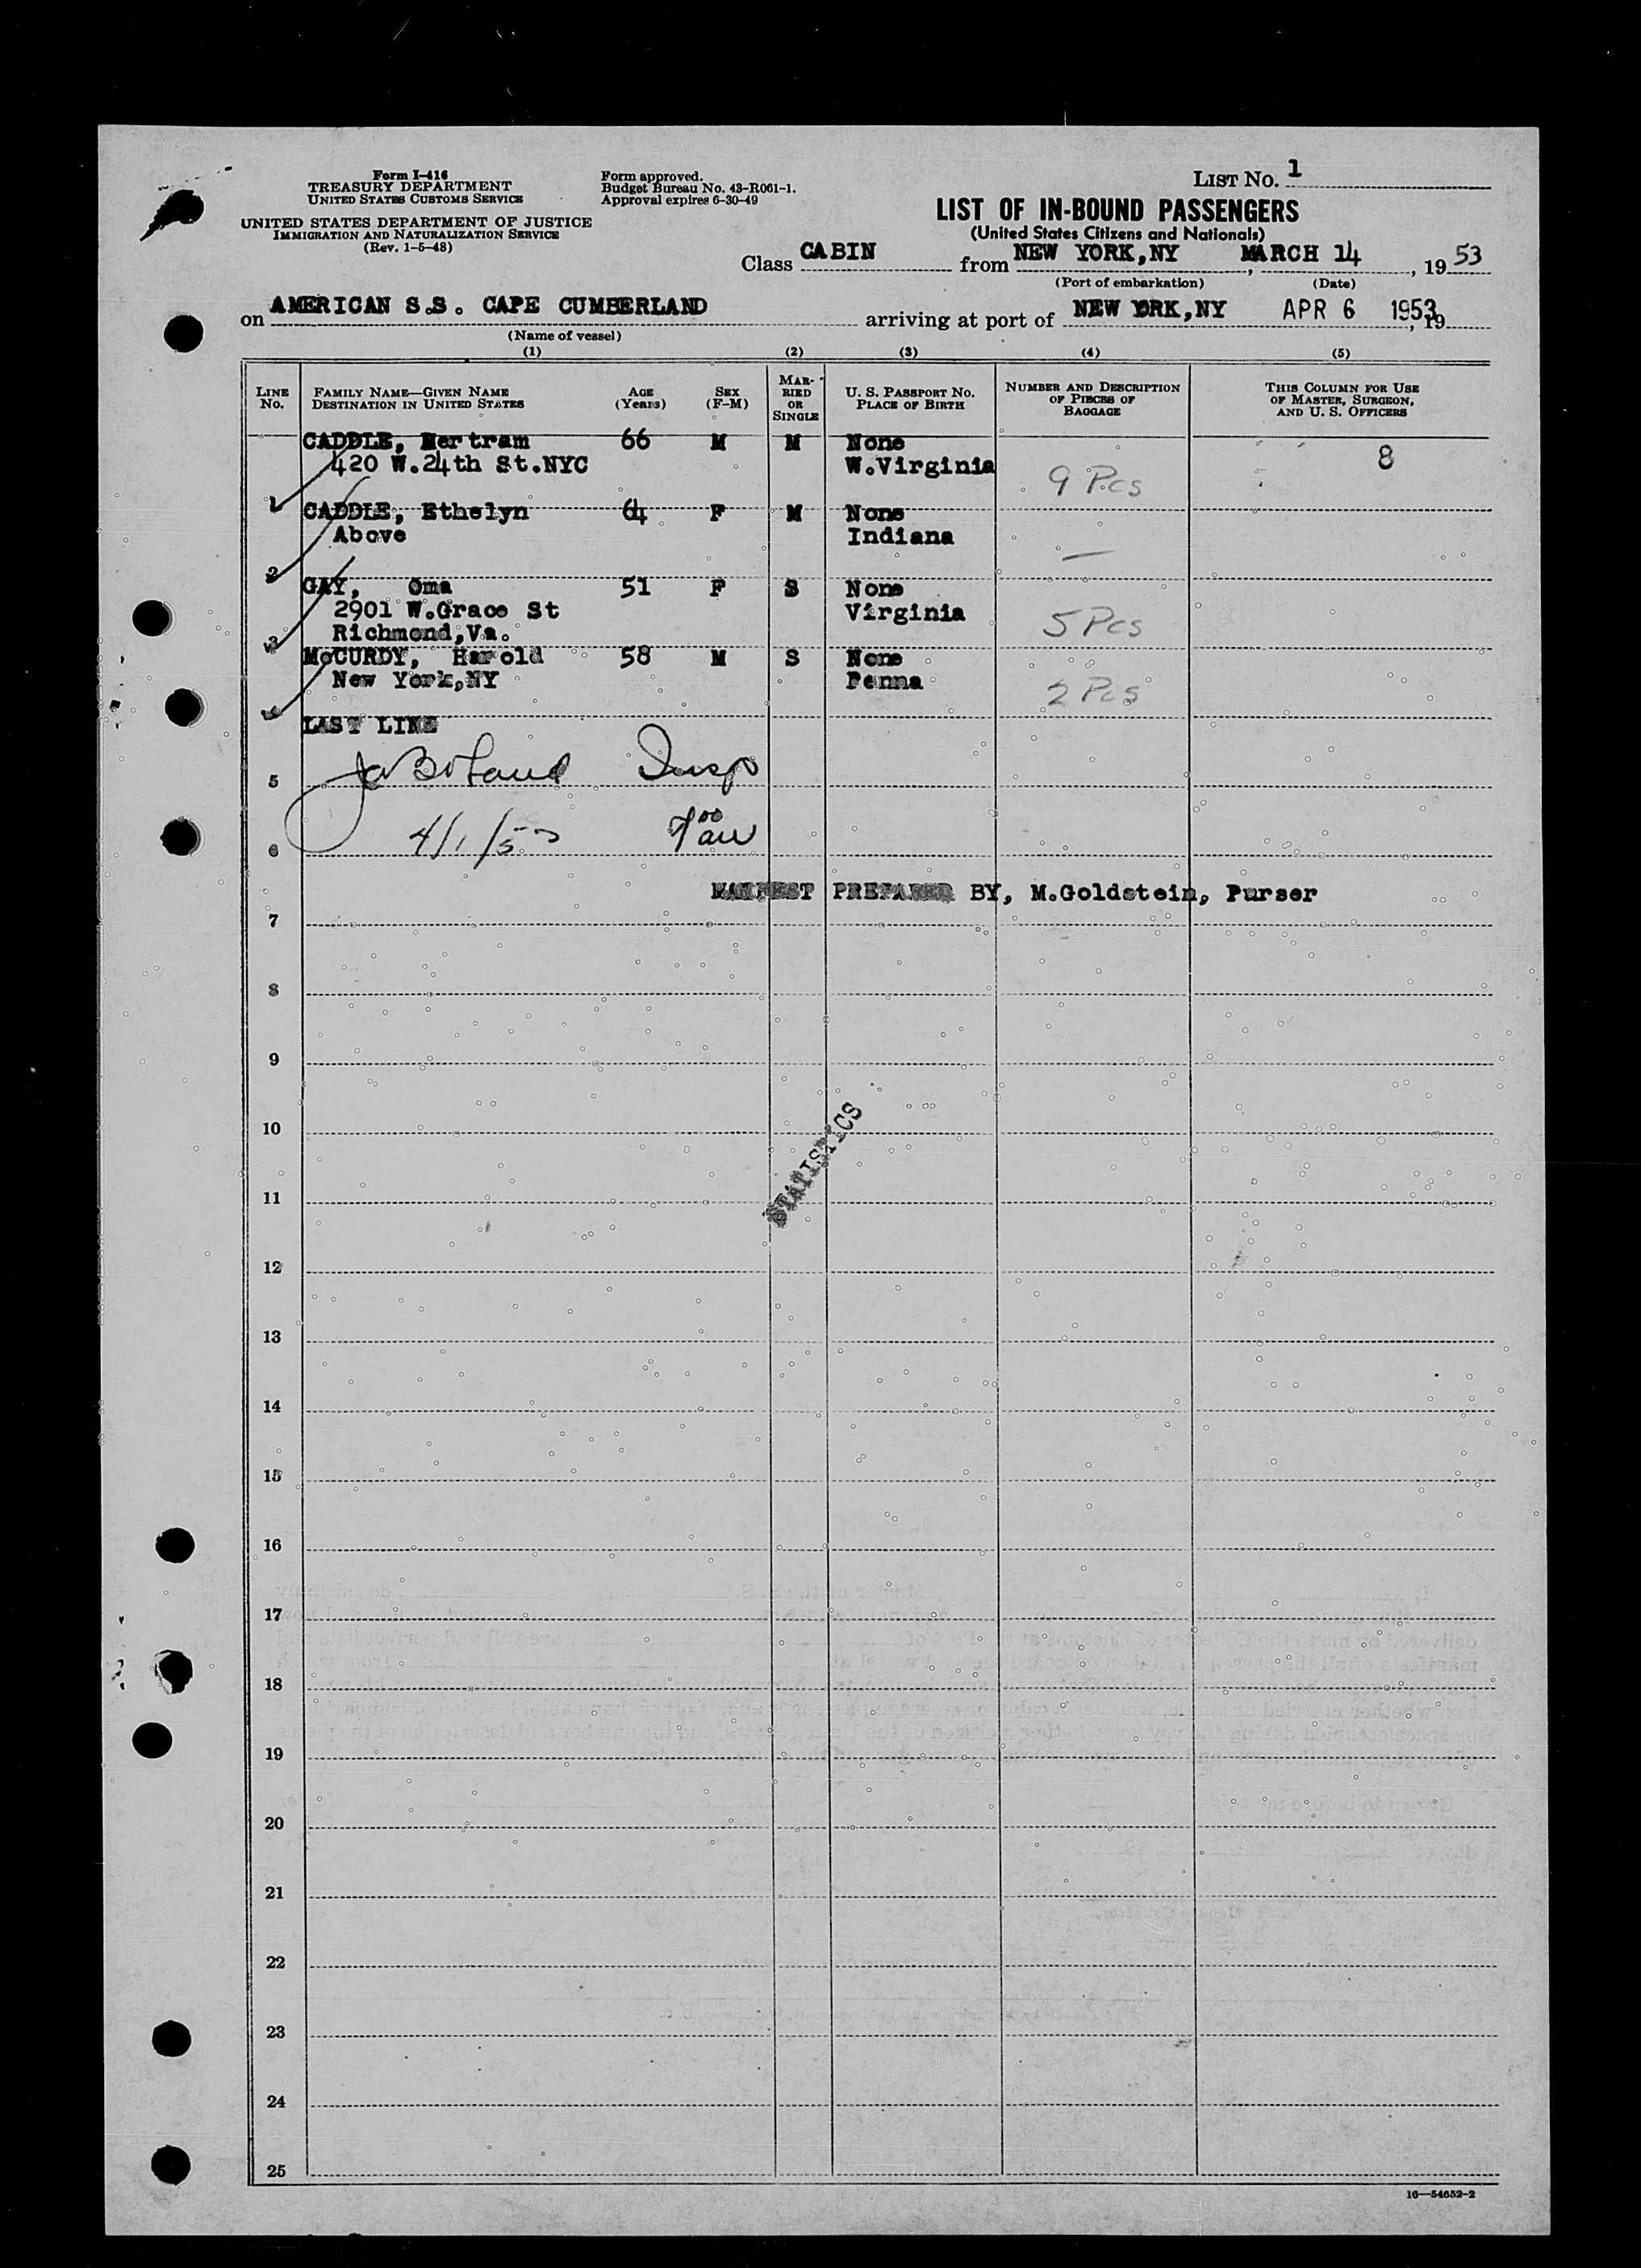 Form I-416
TREASURY DEPARTMENT
UNITED STATES CUSTOMS SERVICE
UNITED STATES DEPARTMENT OF JUSTICE
IMMIGRATION AND NATURALIZATION SERVICE
(Rev. 1-5-48)
Form approved.
Budget Bureau No. 43-R061-1.
Approval expires 6-30-49
LIST No. 1
LIST OF IN-BOUND PASSENGERS
(United States Citizens and Nationals)
Class CABIN from NEW YORK,NY , MARCH 14 , 19 53
(Port of embarkation) (Date)
on AMERICAN S.S. CAPE CUMBERLAND arriving at port of NEW YORK,NY APR 6 1953 , 19
(Name of vessel)
(1) (2) (3) (4) (5)
LINE No. FAMILY NAME—GIVEN NAME DESTINATION IN UNITED STATES AGE (Years) SEX (F-M) MARRIED OR SINGLE U. S. PASSPORT No. PLACE OF BIRTH NUMBER AND DESCRIPTION OF PIECES OF BAGGAGE THIS COLUMN FOR USE OF MASTER, SURGEON, AND U. S. OFFICERS
CADDLE, Mertram 66 M M None
420 W.24th St.NYC W.Virginia 9 Pcs 8
1 CADDLE, Ethelyn 64 F M None
Above Indiana —
2 GAY, Oma 51 F S None
2901 W.Grace St Virginia 5 Pcs
Richmond,Va.
3 McCURDY, Harold 58 M S None
New York,NY Penna 2 Pcs
4 LAST LINE
5 Insp
6
MANIFEST PREPARED BY, M.Goldstein, Purser
7
8
9
10
STATISTICS
11
12
13
14
15
16
17
18
19
20
21
22
23
24
25
16—54652-2